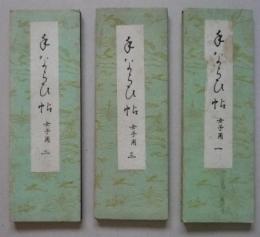 手ならひ帖 女子用 二
手ならひ帖 女子用 三
手ならひ帖 女子用 一